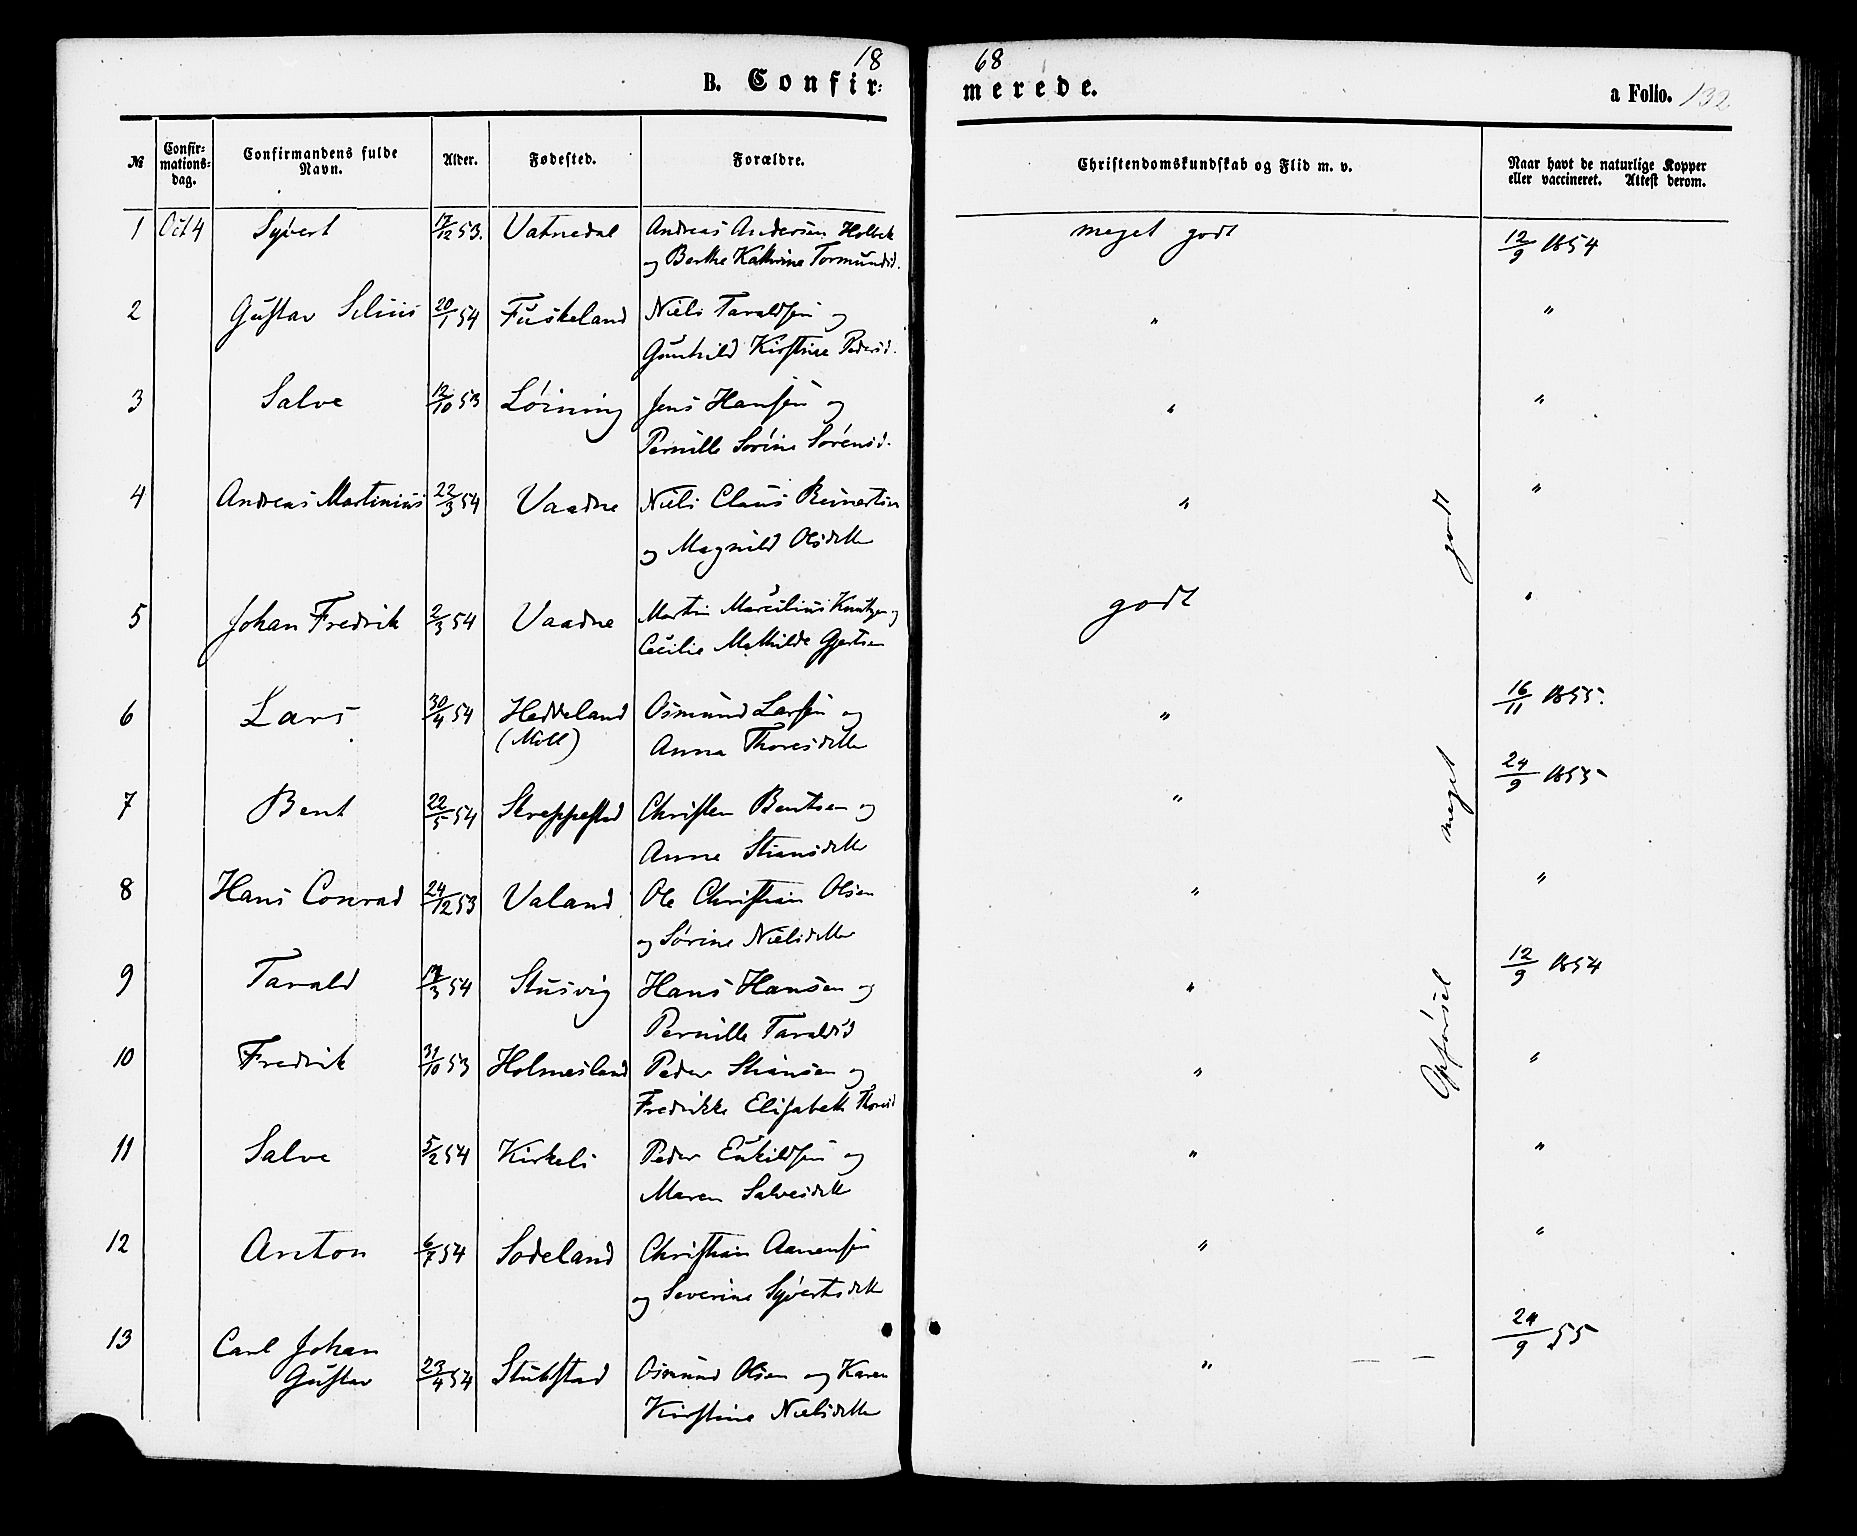 18 68
B. Confir: merede. a Folio. 132
№ Confir: mations: dag. Confirmandens fulde Navn. Alder. Fødested. Forældre. Christendomskundskab og Flid m. v. Naar havt de naturlige Kopper eller vaccineret. Attest derom.
1 Oct 4 Syvert 17/12 53. Vatnedal Andreas Andersen Holbek meget godt 12/9 1854
og Berthe Kathrine Tormundsd.
2 Gustav Selius 20/1 54 Fuskeland Niels Taraldsen og " "
Gunhild Kirstine Pedersd.
3 Salve 12/10 53 Løining Jens Hansen og " "
Pernille Sorine Sørensd.
4 Andreas Martinius 22/3 54 Vaadne Niels Claus Reinertsen " "
og Magnild Olsdatter
5 Johan Fredrik 2/3 54 Vaadne Martin Marcilius Knutsen og godt "
Cecilie Mathilde Gjertsen
6 Lars 30/4 54 Heddeland Osmund Larsen og " 16/11 1855.
(Moll) Anna Thoresdatter
7 Bent 22/5 54 Skreppestad Christen Bentsen og " 24/9 1855
Anne Stiansdatter
8 Hans Conrad 24/12 53 Valand Ole Christian Olsen " "
og Sørine Nielsdatter
9 Tarald /3 54 Stusvig Hans Hansen og " 12/9 1854
Pernille Taraldsd
10 Fredrik 31/10 53 Holmesland Peder Stiansen og " "
Fredrikke Elisabeth Thoresd
11 Salve 5/2 54 Kirkeli Peder Eskildsen og " "
Maren Salvesdatter
12 Anton 6/7 54 Sodeland Christian Aanensen " "
og Severine Syvertsdatter
13 Carl Johan 24/9 55
Gustav 23/4 54 Stubstad Osmund Olsen og Karen " — —
Kirstine Nielsdatter
Opførsel meget godt